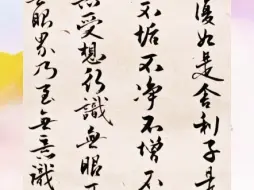 復如是舍利子是
不垢不净不增不
受想行識無眼
眼界乃至無意識